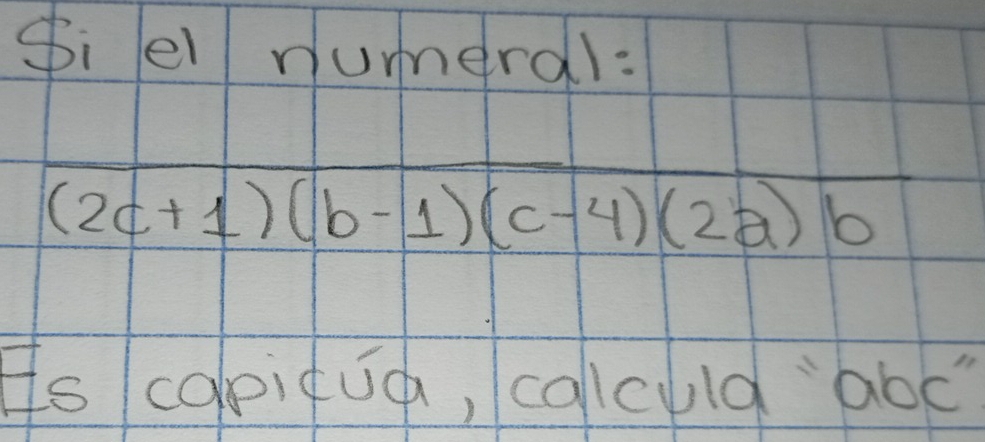 Si el numeral:
(2c+1)(b-1)(c-4)(2a)b
Es capicúa, calcula "abc"